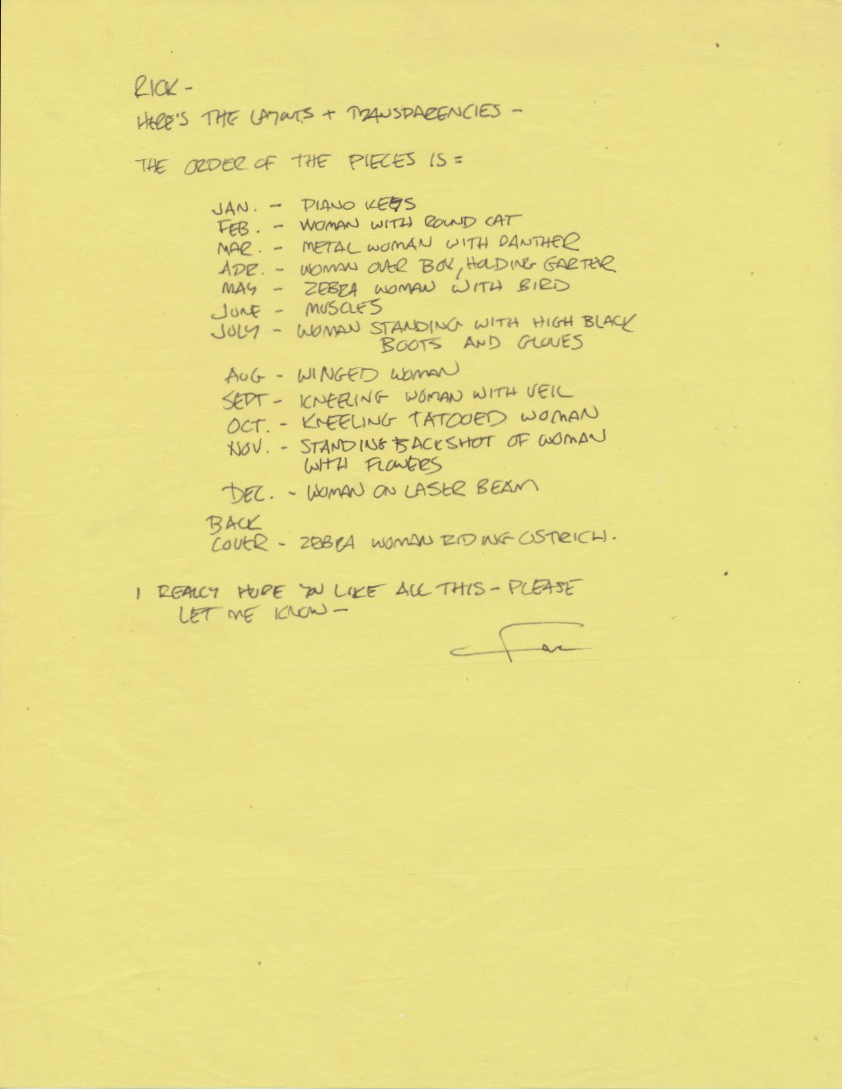 RICK -
HERE'S THE LAYOUTS + TRANSPARENCIES -
THE ORDER OF THE PIECES IS =
JAN. - PIANO KEYS
FEB. - WOMAN WITH ROUND CAT
MAR. - METAL WOMAN WITH PANTHER
APR. - WOMAN OVER BOX, HOLDING GARTER
MAY - ZEBRA WOMAN WITH BIRD
JUNE - MUSCLES
JULY - WOMAN STANDING WITH HIGH BLACK
BOOTS AND GLOVES
AUG - WINGED WOMAN
SEPT - KNEELING WOMAN WITH VEIL
OCT. - KNEELING TATOOED WOMAN
NOV. - STANDING BACKSHOT OF WOMAN
WITH FLOWERS
DEC. - WOMAN ON LASER BEAM
BACK
COVER - ZEBRA WOMAN RIDING OSTRICH.
I REALLY HOPE YOU LIKE ALL THIS - PLEASE
LET ME KNOW -